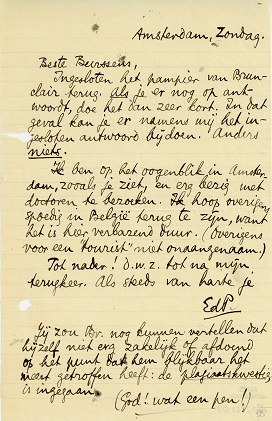 Amsterdam, Zondag.
Beste Burssens,
Ingesloten het pampier van Brun-
clair terug. Als je er nog op ant-
woordt, doe het dan zeer kort. In dat
geval kan je er namens mij het in-
gesloten antwoord bijdoen. Anders
niets.
Ik ben op het oogenblik in Amster-
dam, zooals je ziet, en erg bezig met
doctoren te bezoeken. Ik hoop overigens
spoedig in België terug te zijn, want
het is hier verbazend duur. (Overigens
voor een "tourist" niet onaangenaam.)
Tot nader! d.w.z. tot na mijn
terugkeer. Als steeds van harte je
EdP.
Jij zou Br. nog kunnen vertellen dat
hijzelf niet erg zakelijk of afdoend
op hèt punt dat hem blijkbaar het
meest getroffen heeft: de plagiaatskwestie
is ingegaan.
(God! wat een pen!)